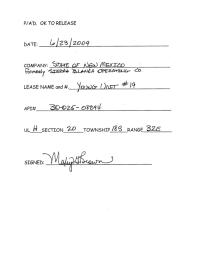 P/A'D. OK TO RELEASE
DATE: 6/23/2009
COMPANY: STATE OF NEW MEXICO
Formerly SIERRA BLANCA OPERATING CO
LEASE NAME and #. YOUNG UNIT #19
API# 30-025-
UL H SECTION 20 TOWNSHIP 18S RANGE 32E
SIGNED: